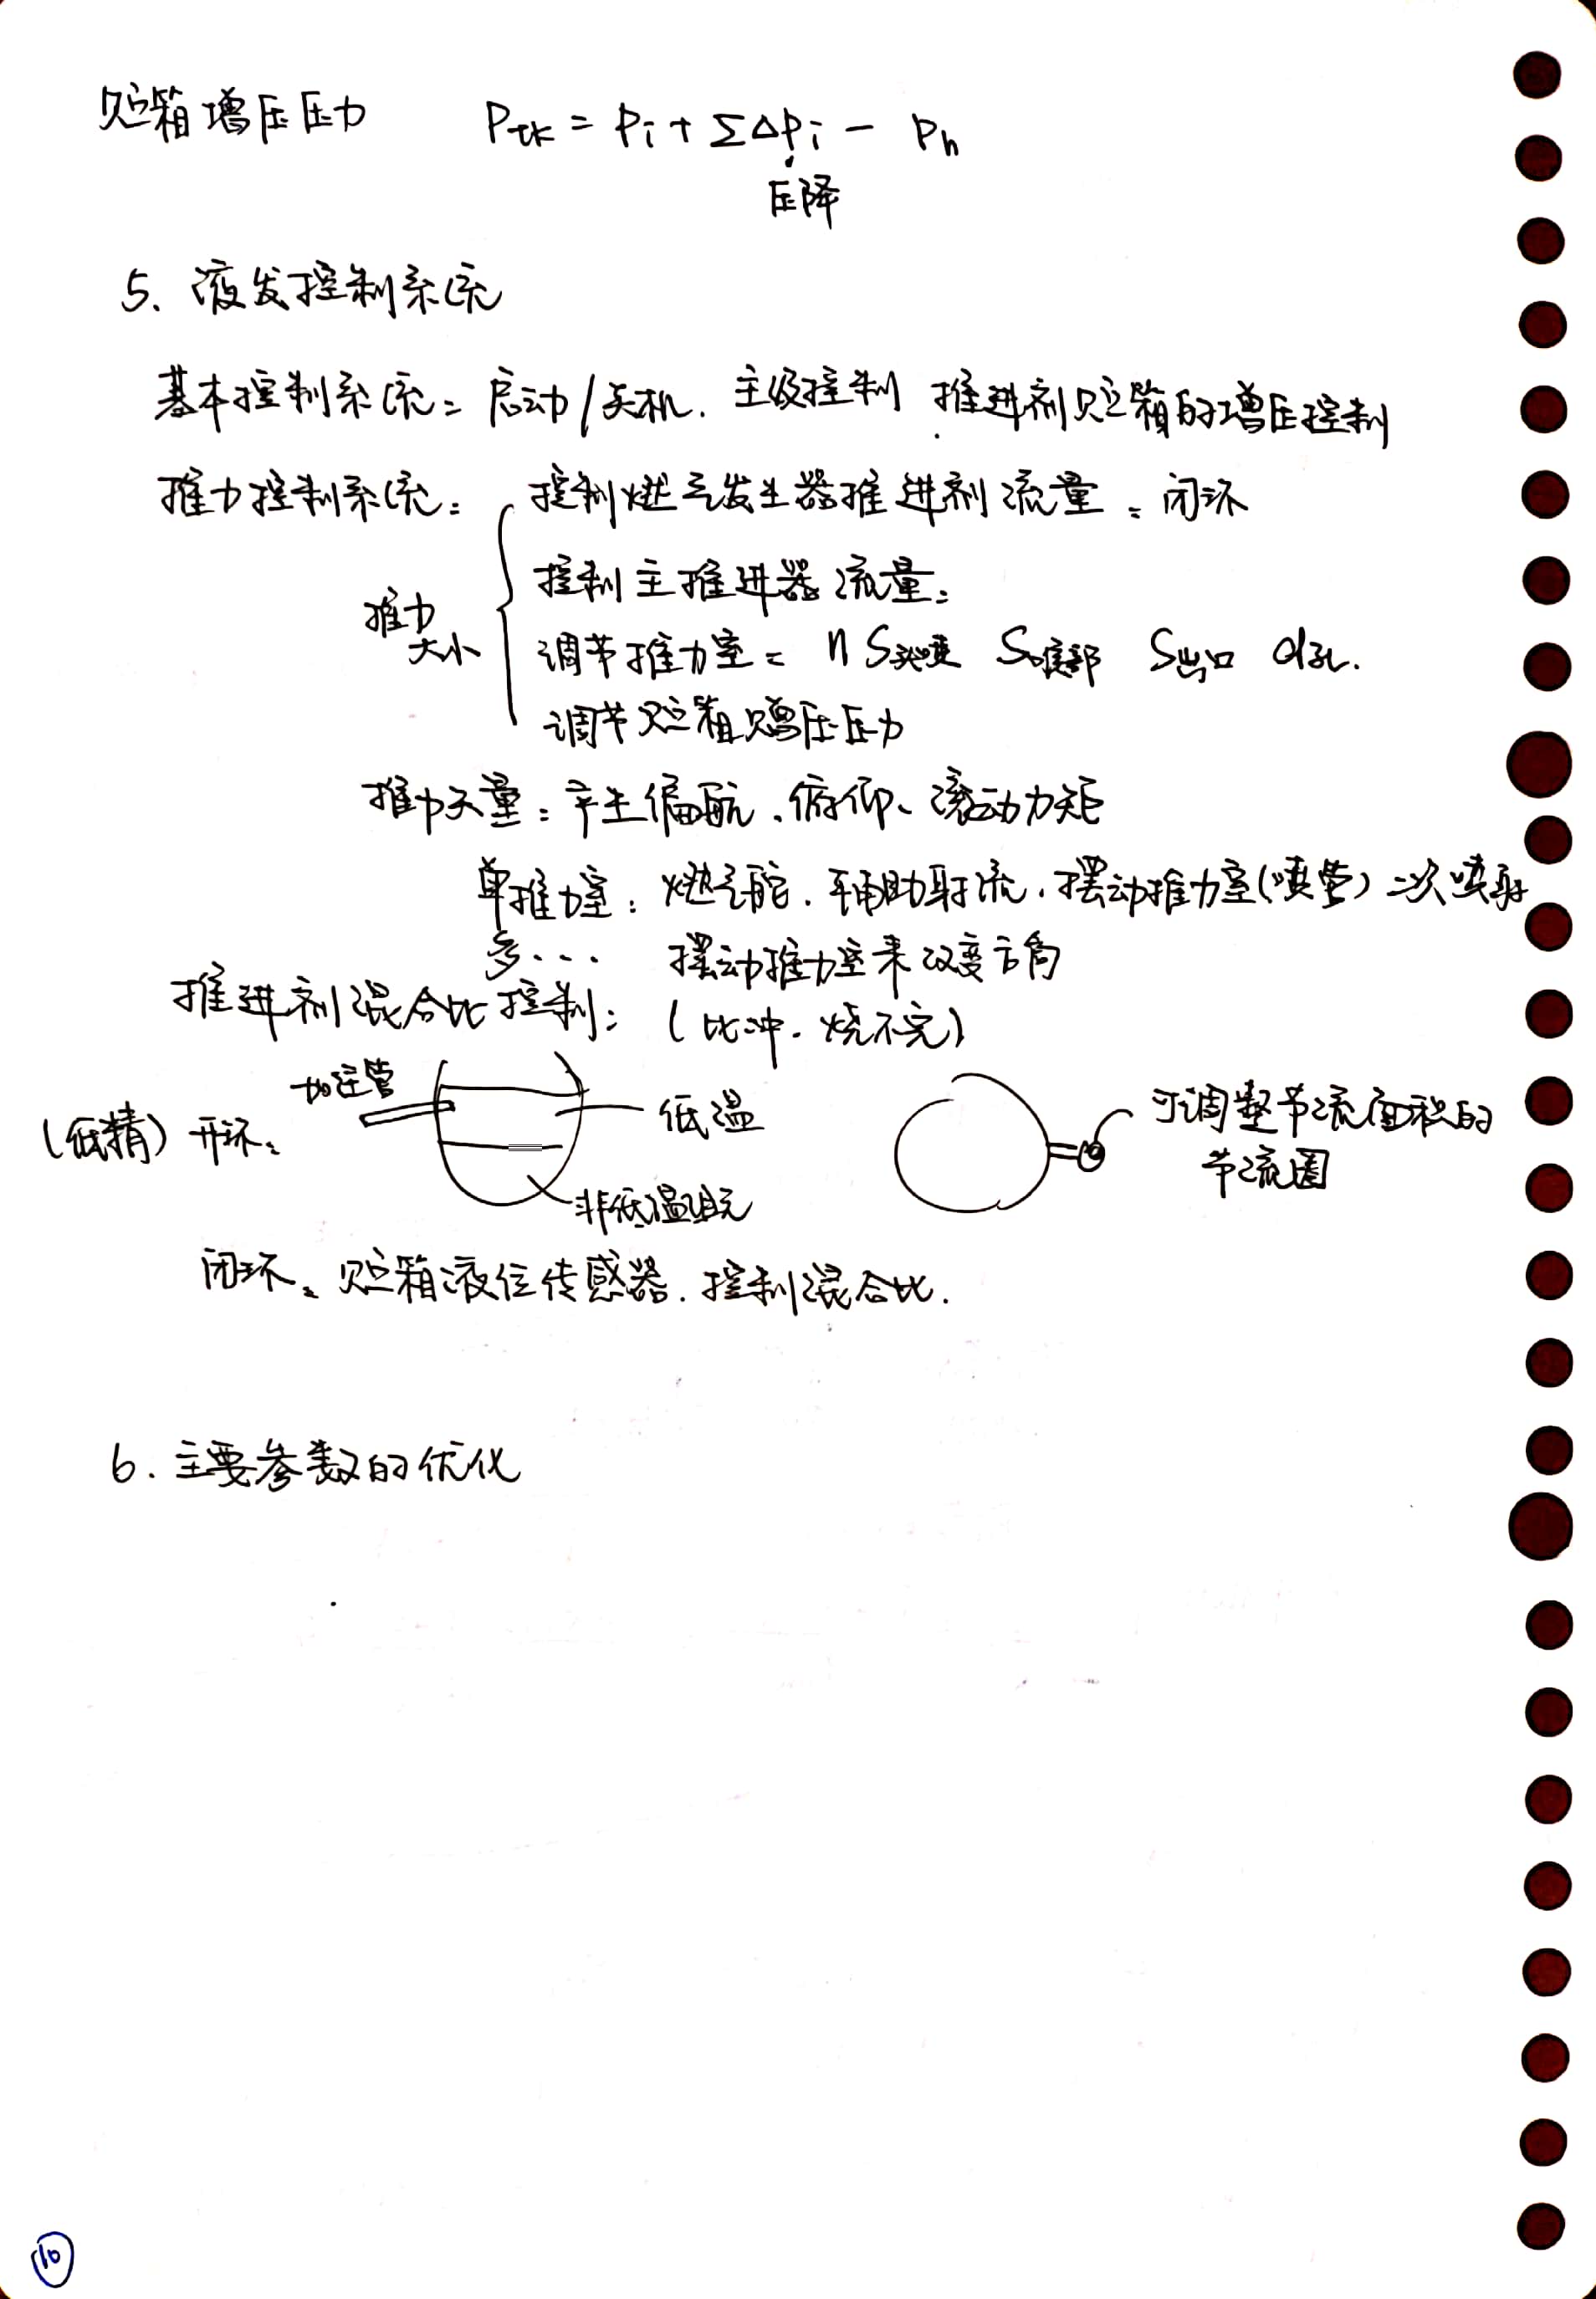 贮箱增压压力 Ptk = Pi + ΣΔPi - Ph
压降
5. 液发控制系统
基本控制系统: 启动/关机. 主级控制 推进剂贮箱的增压控制
推力控制系统: 控制燃气发生器推进剂流量: 闭环
控制主推进器流量:
推力大小 调节推力室: n S S喉部 S出口 d孔.
调节贮箱增压压力
推力矢量: 产生偏航、俯仰、滚动力矩
单推力室: 燃气舵. 辅助射流. 摆动推力室(喷管) 二次喷射
多... 摆动推力室来改变方向
推进剂混合比控制: (比冲. 烧不完)
加注管
(低精) 开环: 低温 可调整节流面积的
节流圈
非低温组元
闭环: 贮箱液位传感器. 控制混合比.
6. 主要参数的优化
10